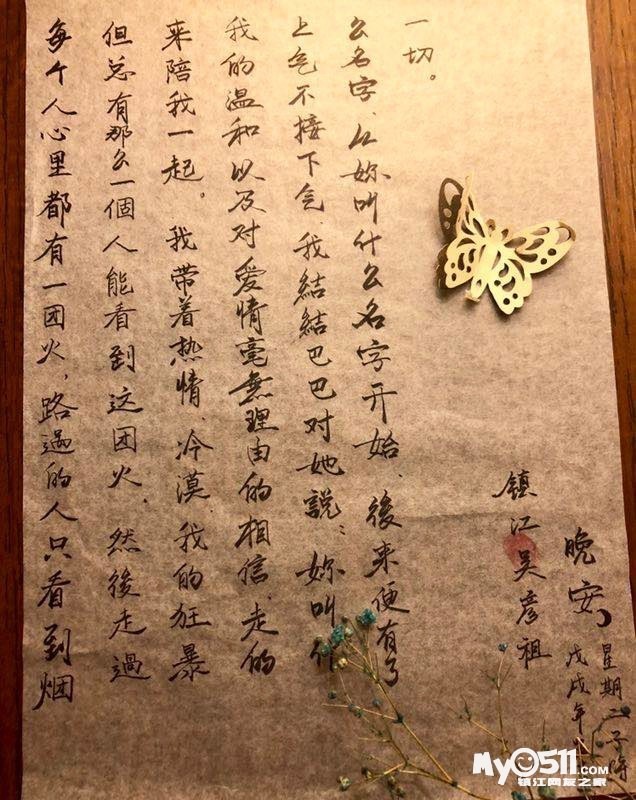 每个人心里都有一团火、路過的人只看到烟
但总有那么一個人能看到这团火、然後走過
来陪我一起。我带着热情、冷漠、我的狂暴
我的温和以及对爱情毫無理由的相信、走的
上气不接下气、我結結巴巴对她説：妳叫什
么名字、从妳叫什么名字开始、後来便有了
一切。
镇江吴彦祖
晚安
戊戌年
星期二子時
My0511.COM
镇江网友之家